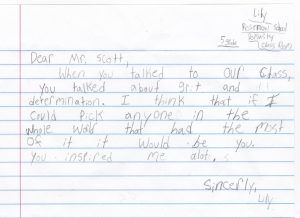 Lily
Rosemont School
5 grade
Dear Mr. Scott,
When you talked to our class,
you talked about grit and
determination. I think that if I
could pick anyone in the
whole world that had the most
of it it would be you.
you inspired me alot,
Sincerly,
Lily